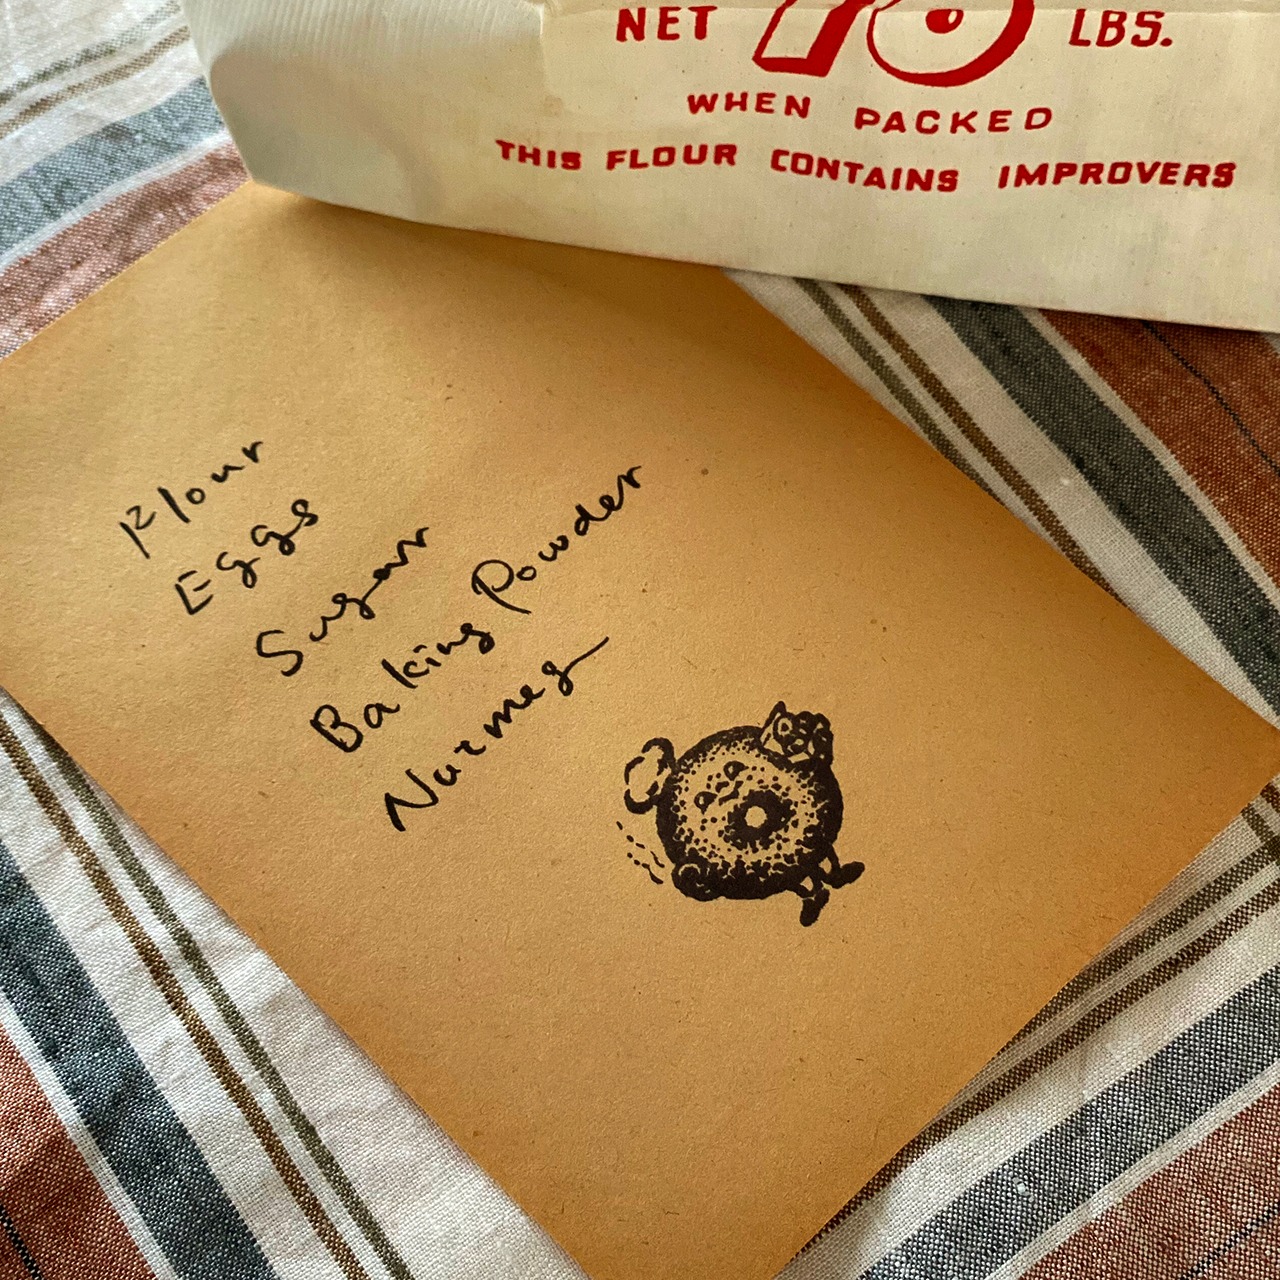 NET 10 LBS.
WHEN PACKED
THIS FLOUR CONTAINS IMPROVERS
Flour
Eggs
Sugar
Baking Powder
Nutmeg